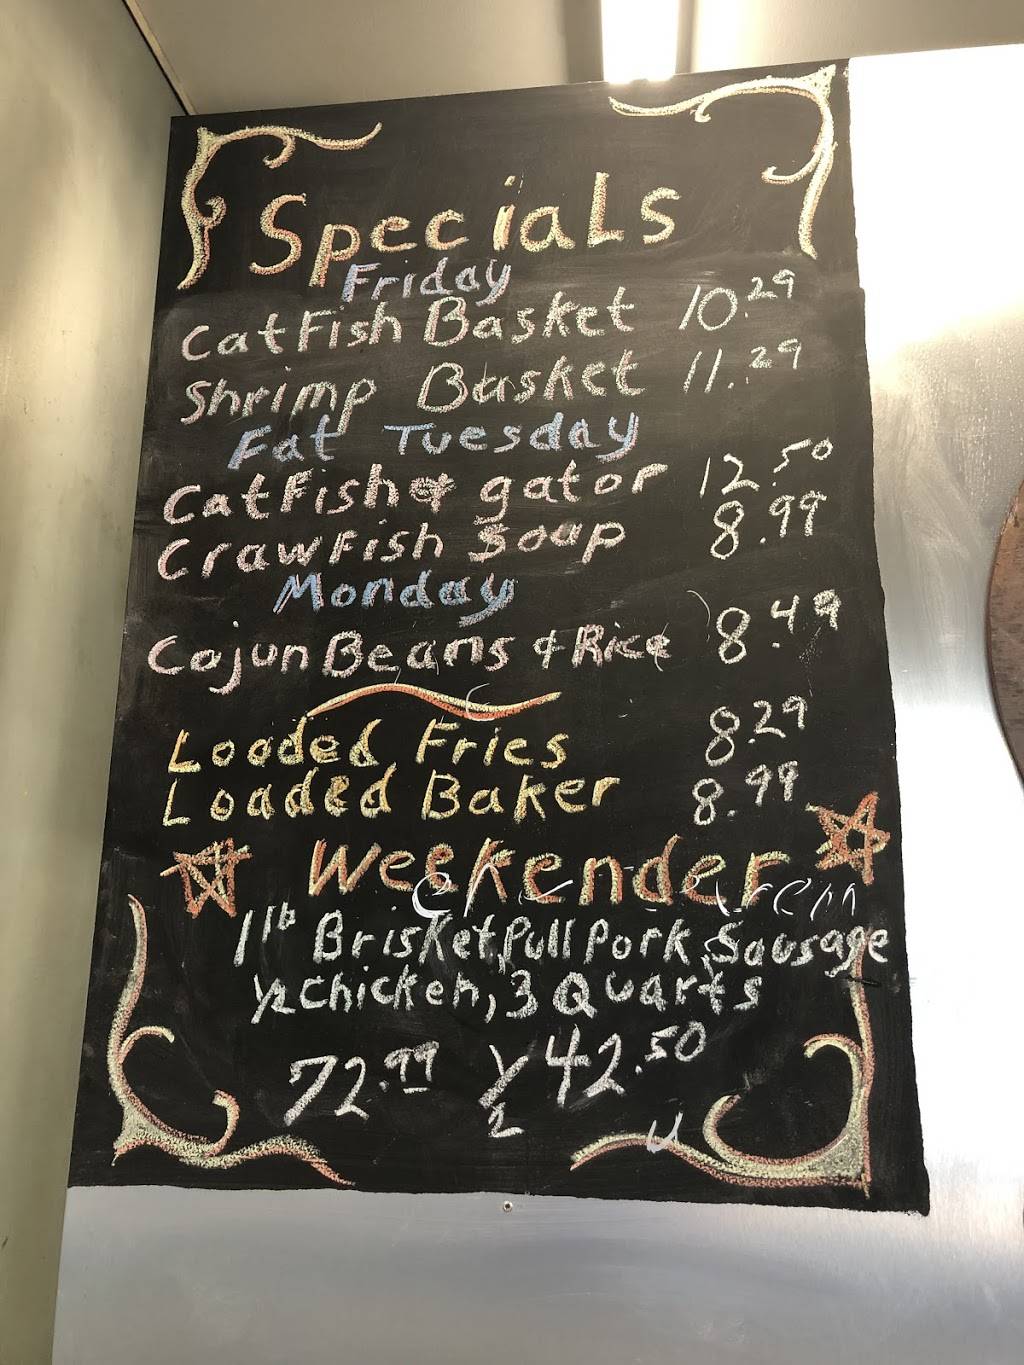 Specials
Friday
CatFish Basket 10.29
Shrimp Basket 11.29
Fat Tuesday
CatFish & gator 12.50
CrawFish Soup 8.99
Monday
Cajun Beans & Rice 8.49
Loaded Fries 8.29
Loaded Baker 8.99
Weekender
1 lb Brisket, Pull Pork, Sausage
1/2 chicken, 3 Quarts
72.99 1/2 42.50